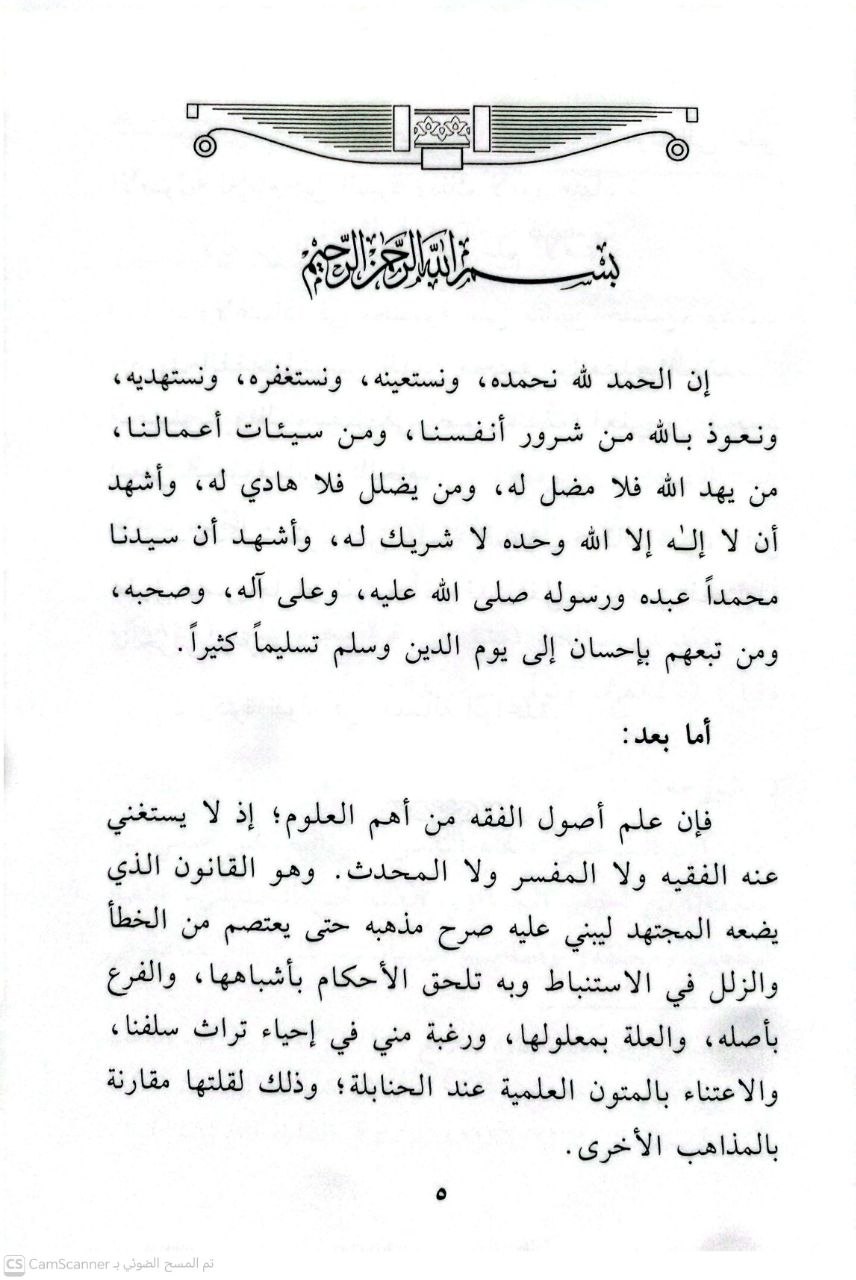 بسم الله الرحمن الرحيم
إن الحمد لله نحمده، ونستعينه، ونستغفره، ونستهديه،
ونعوذ بالله من شرور أنفسنا، ومن سيئات أعمالنا،
من يهد الله فلا مضل له، ومن يضلل فلا هادي له، وأشهد
أن لا إلٰه إلا الله وحده لا شريك له، وأشهد أن سيدنا
محمداً عبده ورسوله صلى الله عليه، وعلى آله، وصحبه،
ومن تبعهم بإحسان إلى يوم الدين وسلم تسليماً كثيراً.
أما بعد:
فإن علم أصول الفقه من أهم العلوم؛ إذ لا يستغني
عنه الفقيه ولا المفسر ولا المحدث. وهو القانون الذي
يضعه المجتهد ليبني عليه صرح مذهبه حتى يعتصم من الخطأ
والزلل في الاستنباط وبه تلحق الأحكام بأشباهها، والفرع
بأصله، والعلة بمعلولها، ورغبة مني في إحياء تراث سلفنا،
والاعتناء بالمتون العلمية عند الحنابلة؛ وذلك لقلتها مقارنة
بالمذاهب الأخرى.
٥
CS CamScanner تم المسح الضوئي بـ